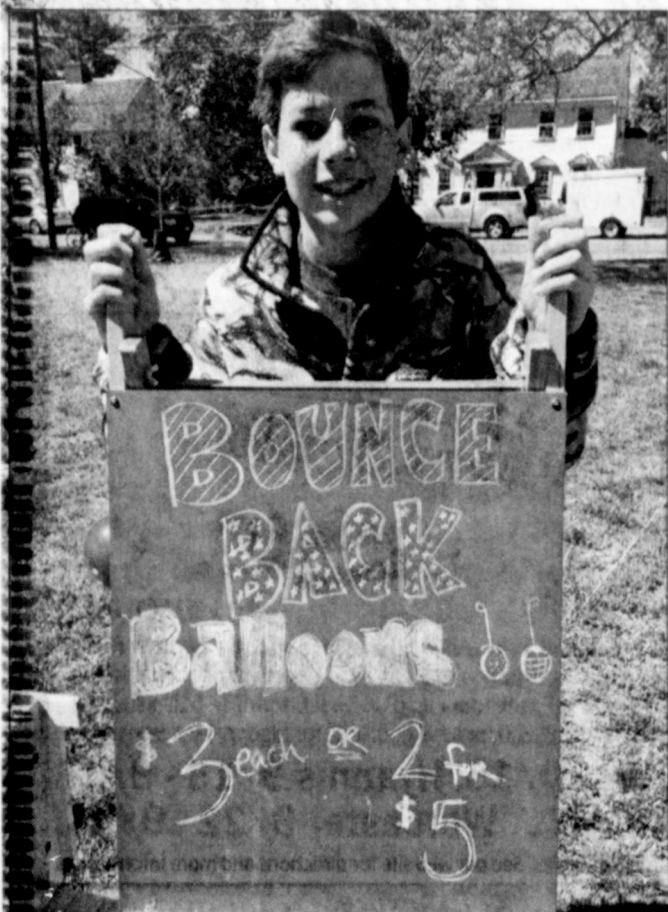 BOUNCE
BACK
Balloons !!
$3 each OR 2 for
$5